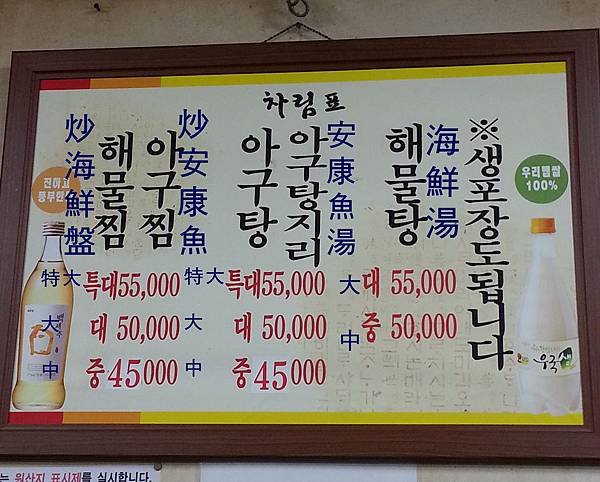 차림표
※생포장도됩니다
海鮮湯
해물탕
대 55,000
중 50,000
大
中
安康魚湯
아구탕지리
아구탕
특대55,000
대 50,000
중45000
特大
大
中
炒安康魚
아구찜
해물찜
炒海鮮盤
특대55,000
대 50,000
중45000
特大
大
中
우리쌀
100%
진하고
우국생
는 원산지 표시제를 실시합니다.